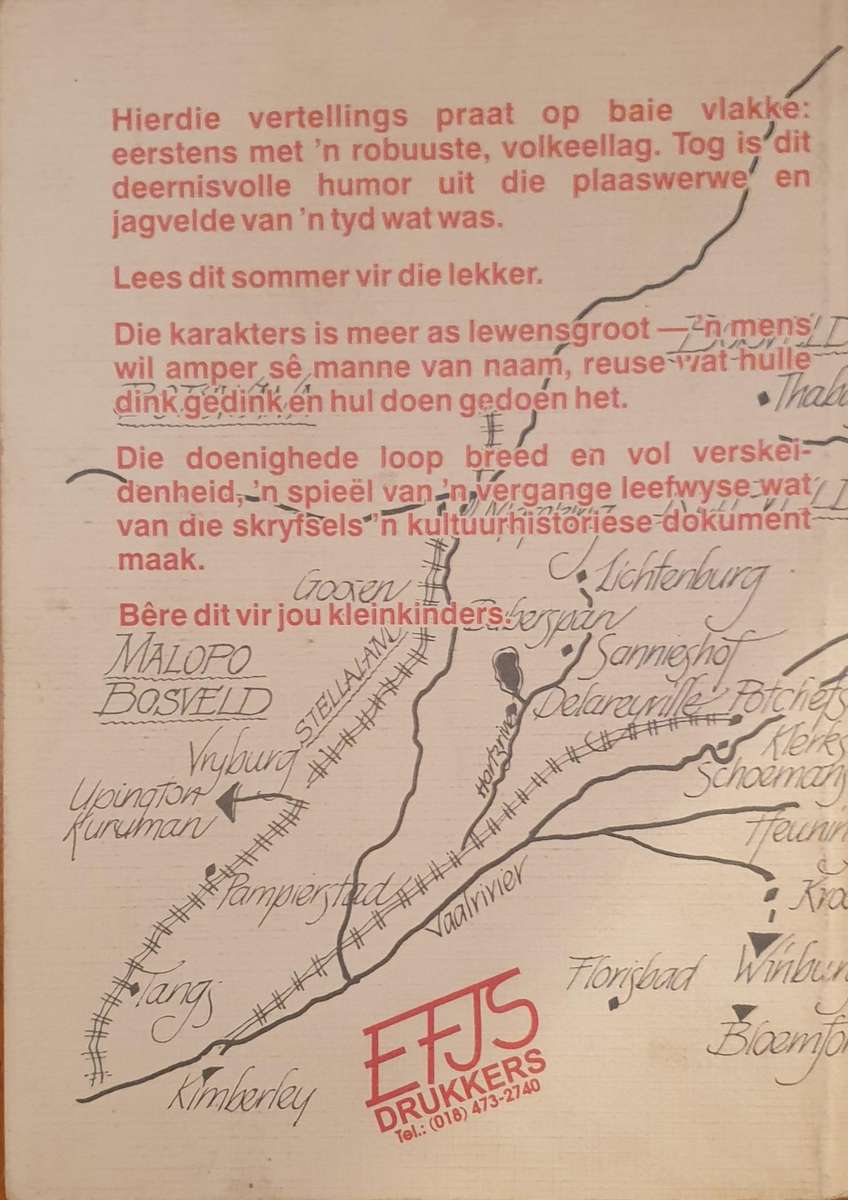 Hierdie vertellings praat op baie vlakke:
eerstens met 'n robuuste, volkeellag. Tog is dit
deernisvolle humor uit die plaaswerwe en
jagvelde van 'n tyd wat was.
Lees dit sommer vir die lekker.
Die karakters is meer as lewensgroot — 'n mens
wil amper sê manne van naam, reuse wat hulle
dink gedink en hul doen gedoen het.
Die doenighede loop breed en vol verskei-
denheid, 'n spieël van 'n vergange leefwyse wat
van die skryfsels 'n kultuurhistoriese dokument
maak.
Bêre dit vir jou kleinkinders.
Goosen
Lichtenburg
MALOPO
BOSVELD
STELLALAND
Sannieshof
Delareyville
Potchefs
Vryburg
Hartzrivier
Klerks
Schoemans
Upington
Kuruman
Heunin
Pampierstad
Vaalrivier
Kroo
Tangs
Florisbad
Winbur
Bloemfon
Kimberley
EFJS
DRUKKERS
Tel.: (018) 473-2740